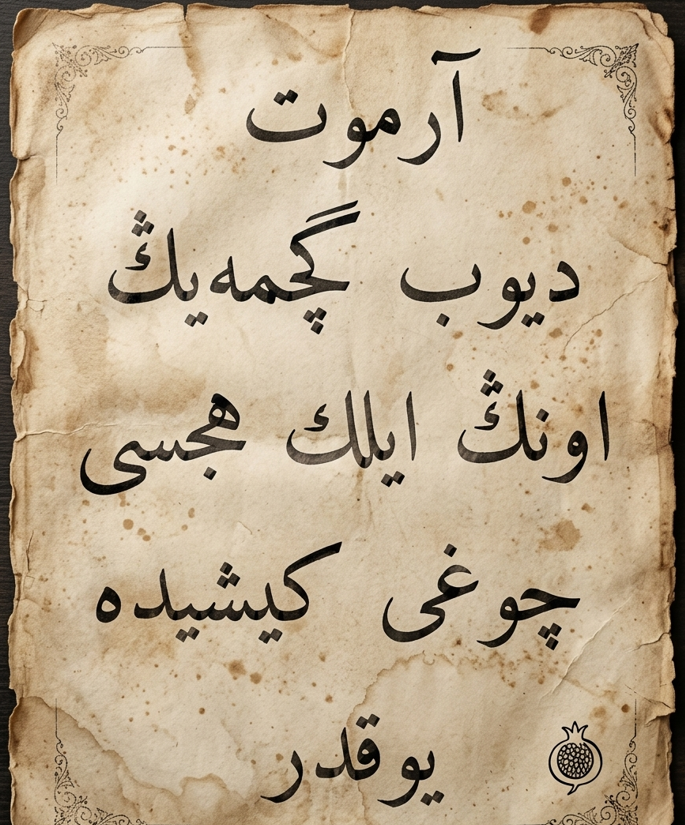 آرموت
دیوب گچمه‌یڭ
اونڭ ایلك هجسی
چوغی کیشیده
یوقدر